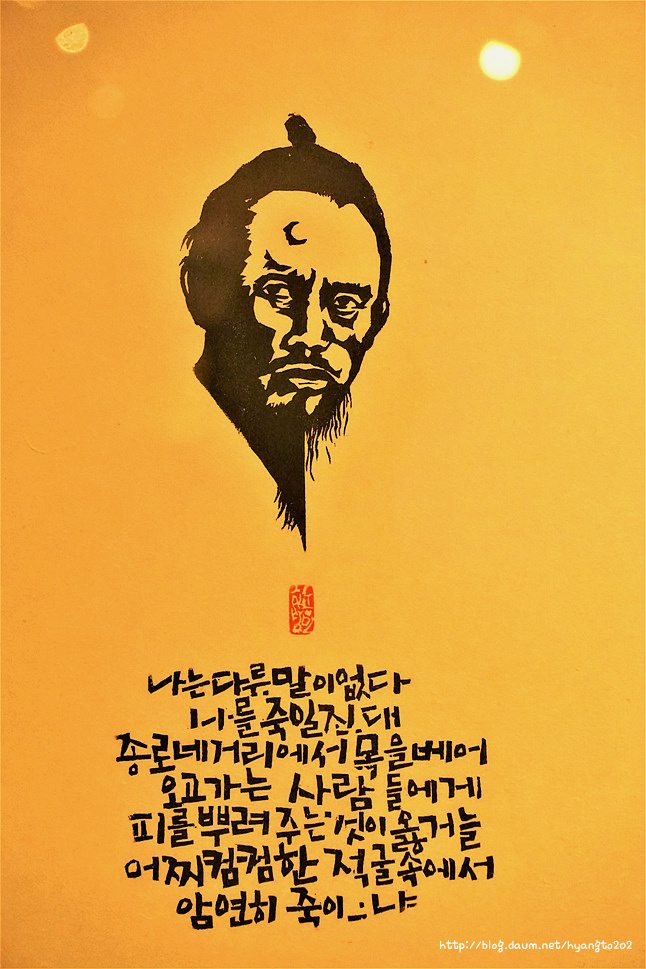 나는 다른 말이 없다
나를 죽일진대
종로네거리에서 목을 베어
오고가는 사람들에게
피를 뿌려주는 것이 옳거늘
어찌 컴컴한 적굴속에서
암연히 죽이느냐
http://blog.daum.net/hyangto202